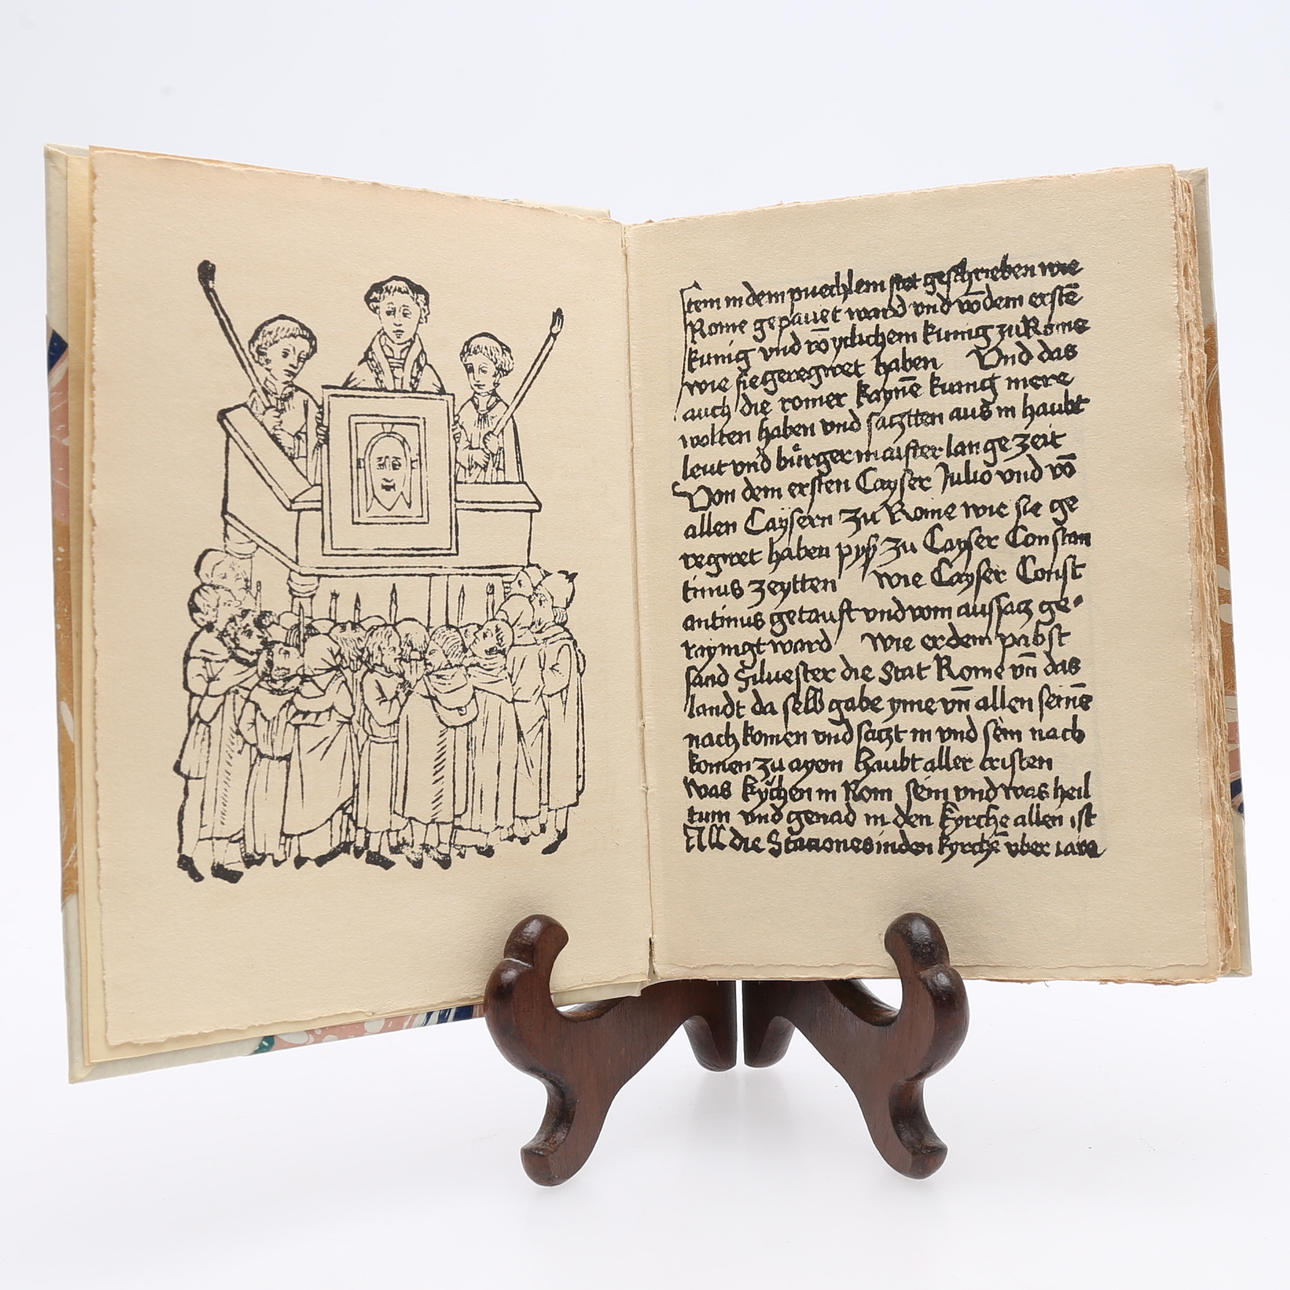 Item in dem puechlem stet geschrieben wie
Rome gepauet ward und vō dem erstē
kunig und yczlichem kunig zu Rome
wie sie geregiret haben Und das
auch die romer kaynē kunig mere
wolten haben und saczten aus in haubt
leut und bürgermaister lange zeit
Von dem ersten Cayser Julio und vō
allen Caysern zu Rome wie sie ge
regiret haben pys zu Cayser Constan
tinus zeytten wie Cayser Const
antinus getauft und vom aussacz ge-
raynigt ward wie er dem pabst
sand Silvester die Stat Rome vn̄ das
landt da selb gabe yme vn̄ allen seinē
nach komen und saczt in und sein nach
komen zu ayem haubt aller cristen
was kÿchen in Rom sein und was heil
tum und genad in den kyrche allen ist
All die Stationes in den kyrchē uber iare